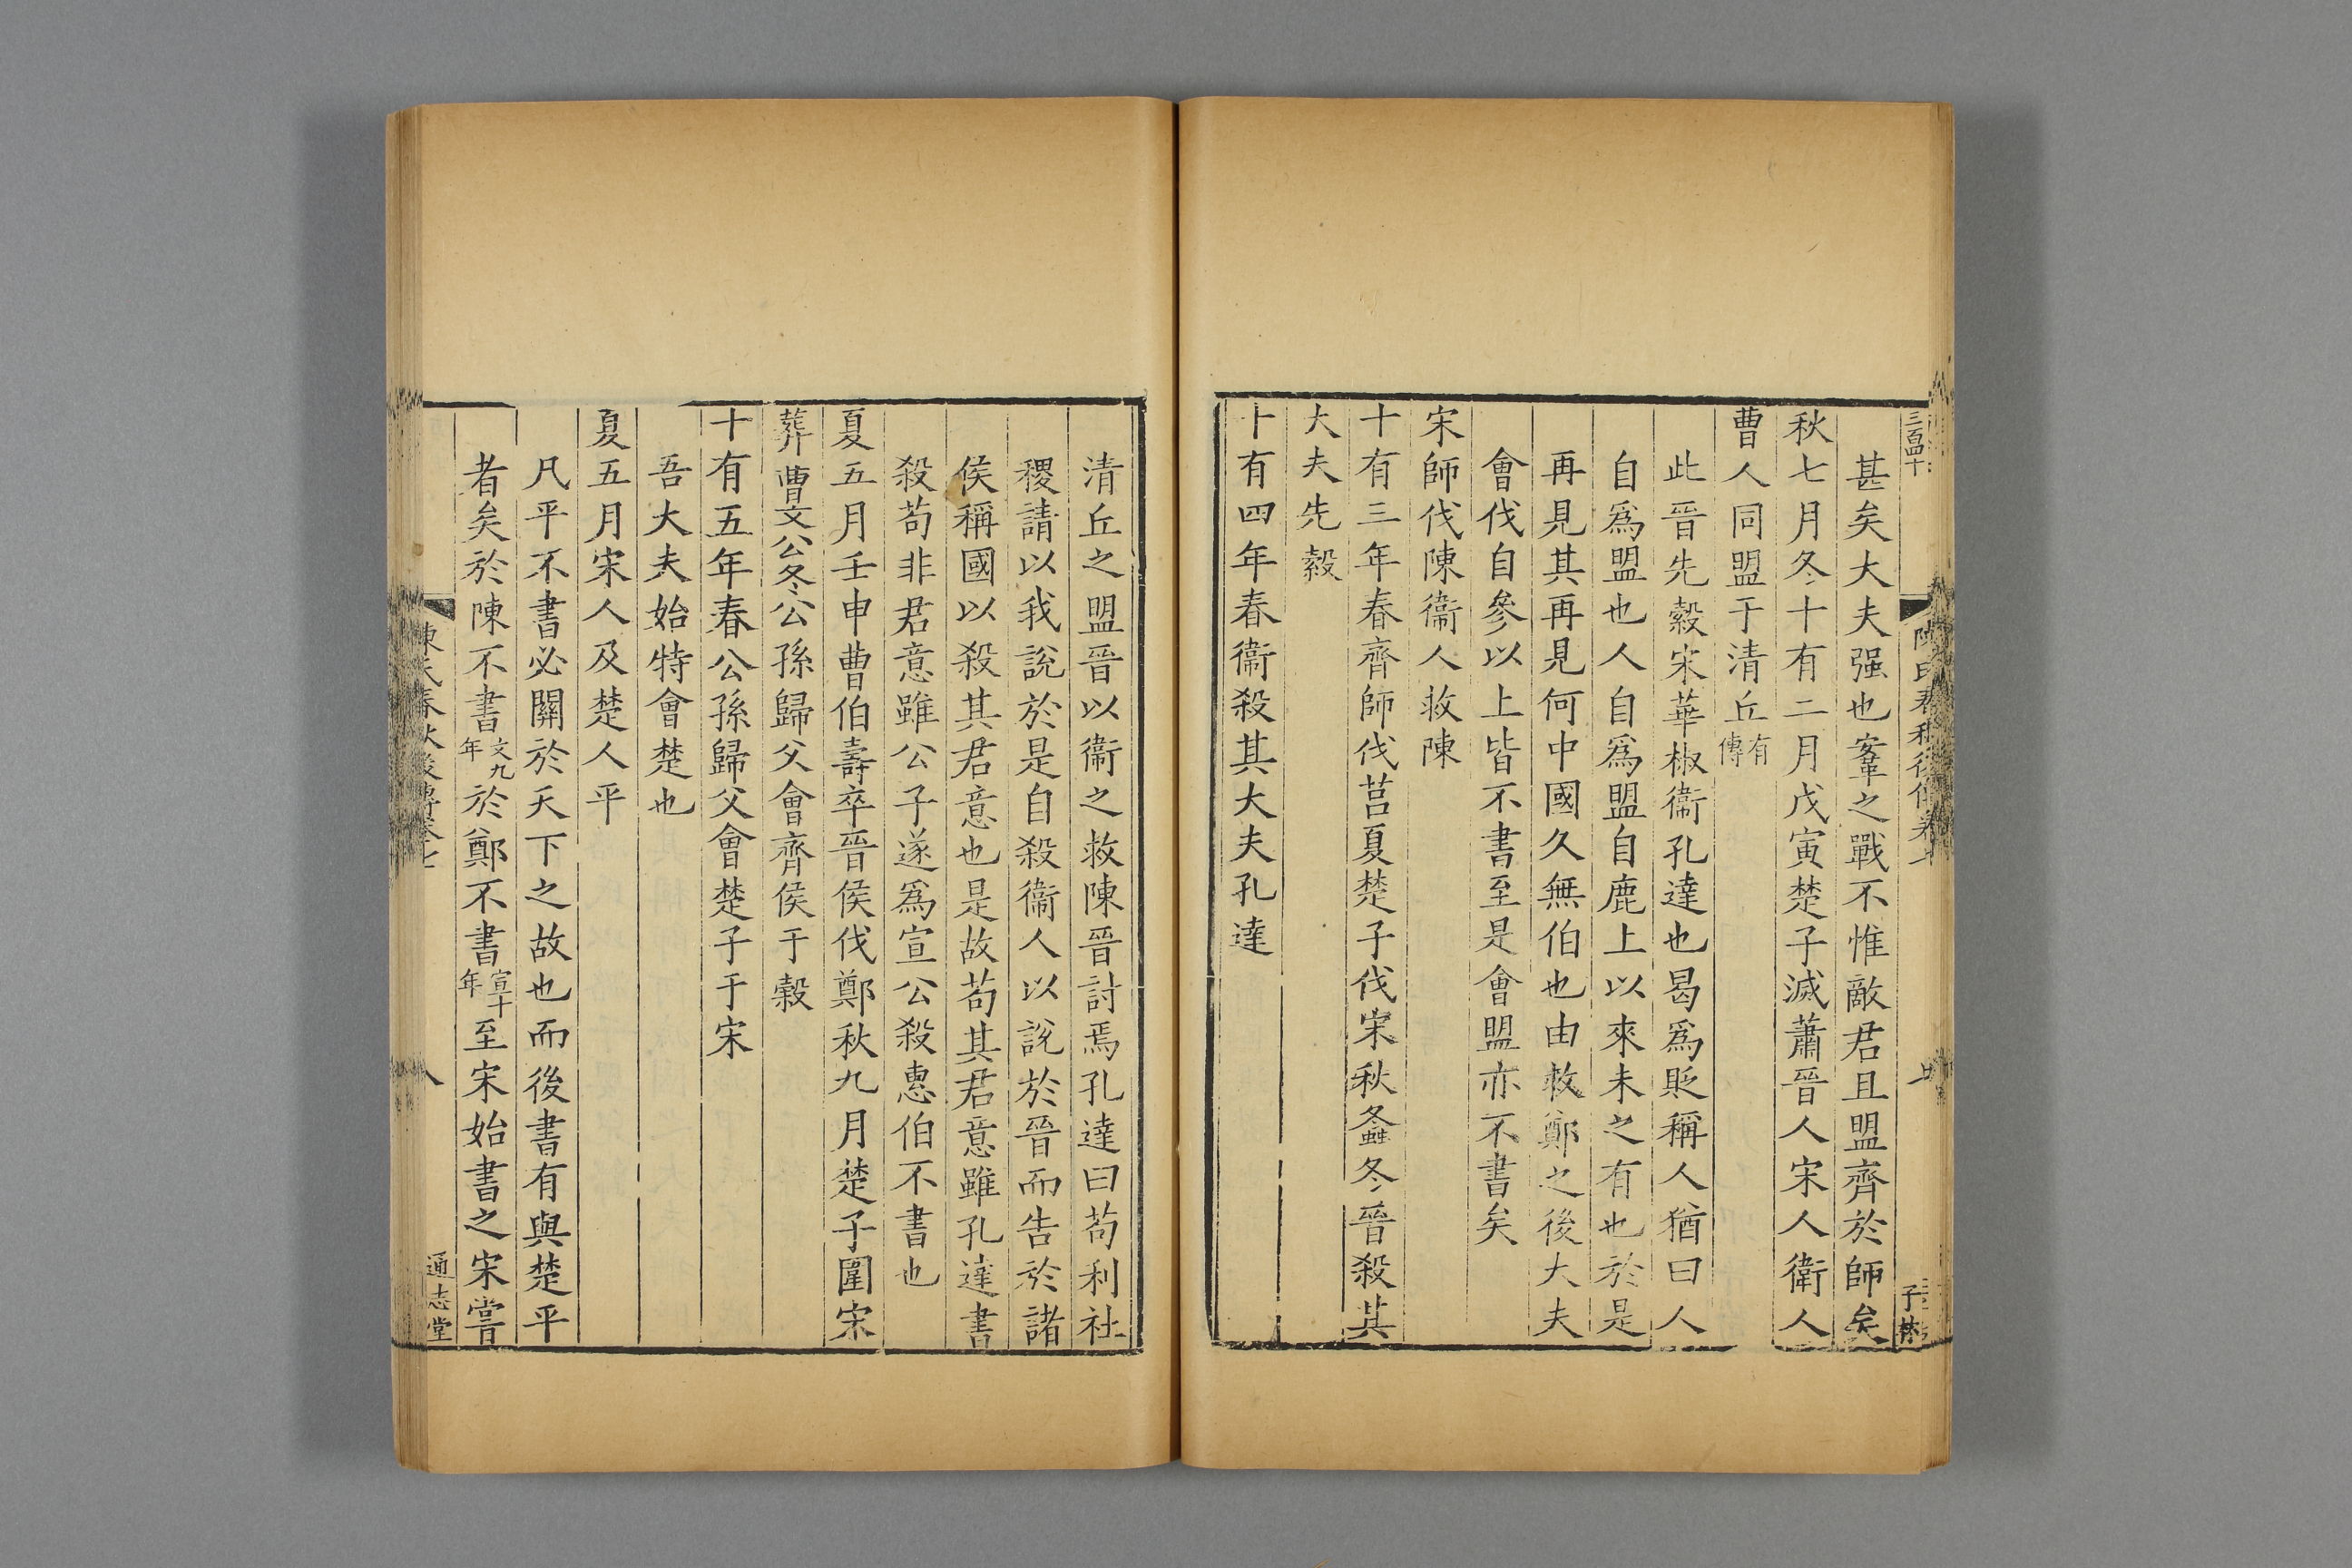 三百四十
甚矣大夫强也鞌之戰不惟敵君且盟齊於師矣
秋七月冬十有二月戊寅楚子滅蕭晉人宋人衛人
曹人同盟于清丘有傳
此晉先縠宋華椒衞孔達也曷爲貶稱人猶曰人
自爲盟也人自爲盟自鹿上以來未之有也於是
再見其再見何中國久無伯也由救鄭之後大夫
會伐自參以上皆不書至是會盟亦不書矣
宋師伐陳衞人救陳
十有三年春齊師伐莒夏楚子伐宋秋螽冬晉殺其
大夫先縠
十有四年春衞殺其大夫孔達
清丘之盟晉以衞之救陳晉討焉孔達曰苟利社
稷請以我說於是自殺衞人以說於晉而告於諸
侯稱國以殺其君意也是故苟其君意雖孔達書
殺苟非君意雖公子遂爲宣公殺惠伯不書也
夏五月壬申曹伯壽卒晉侯伐鄭秋九月楚子圍宋
葬曹文公冬公孫歸父會齊侯于穀
十有五年春公孫歸父會楚子于宋
吾大夫始特會楚也
夏五月宋人及楚人平
凡平不書必關於天下之故也而後書有與楚平
者矣於陳不書文九年於鄭不書宣十年至宋始書之宋嘗
陳氏春秋後傳卷七
八
通志堂